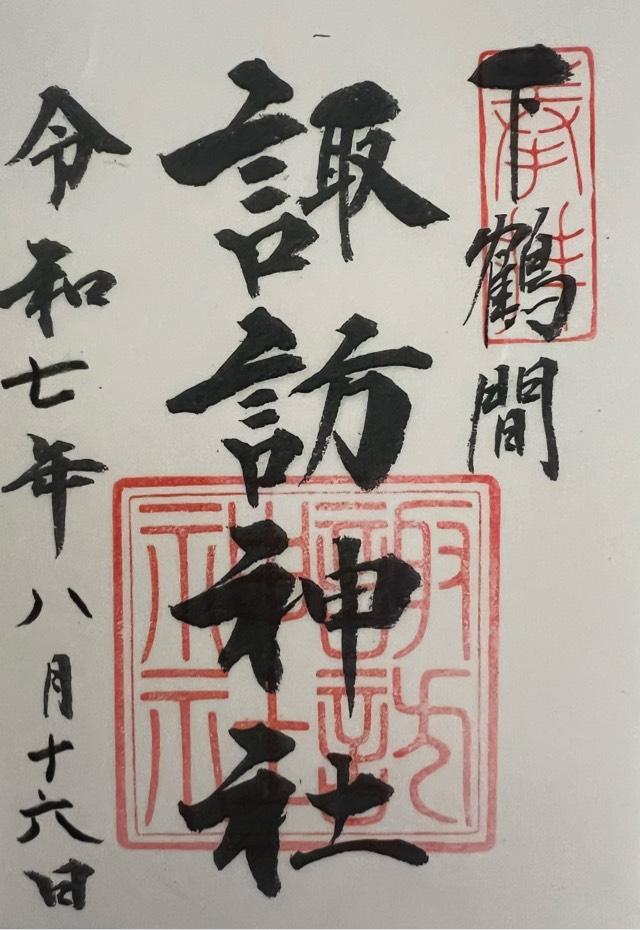 奉拝
下鶴間
諏訪神社
諏訪神社
令和七年八月十六日